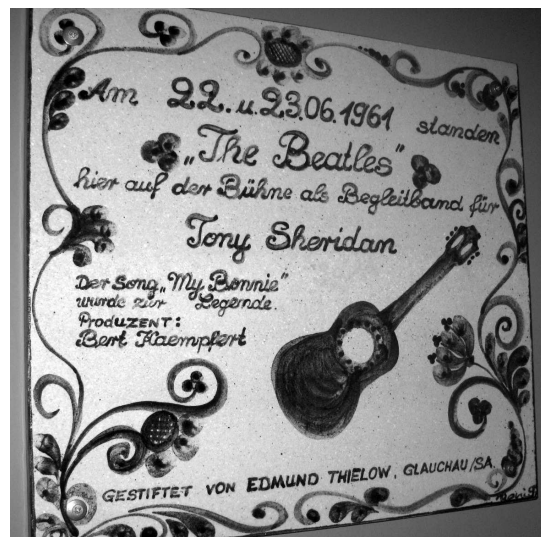 Am 22. u. 23.06.1961 standen
„The Beatles"
hier auf der Bühne als Begleitband für
Tony Sheridan
Der Song „My Bonnie"
wurde zur Legende.
PRODUZENT:
Bert Kaempfert
GESTIFTET VON EDMUND THIELOW, GLAUCHAU/SA.